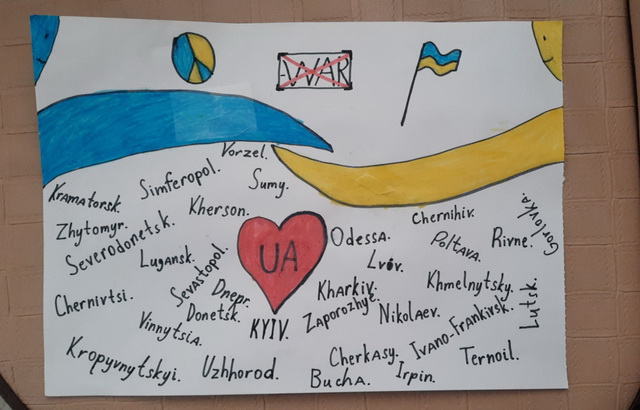 WAR
Vorzel.
Simferopol.
Sumy.
Kramatorsk.
Kherson.
Chernihiv.
Gorlovka.
Zhytomyr.
Severodonetsk.
UA
Odessa.
Poltava.
Rivne.
Lugansk.
Lvov.
Sevastopol.
Dnepr.
Kharkiv.
Khmelnytsky.
Chernivtsi.
Donetsk.
Zaporozhye.
Nikolaev.
Lutsk.
Vinnytsia.
KYIV.
Ivano-Frankivsk.
Kropyvnytskyi.
Uzhhorod.
Cherkasy.
Ternoil.
Bucha.
Irpin.